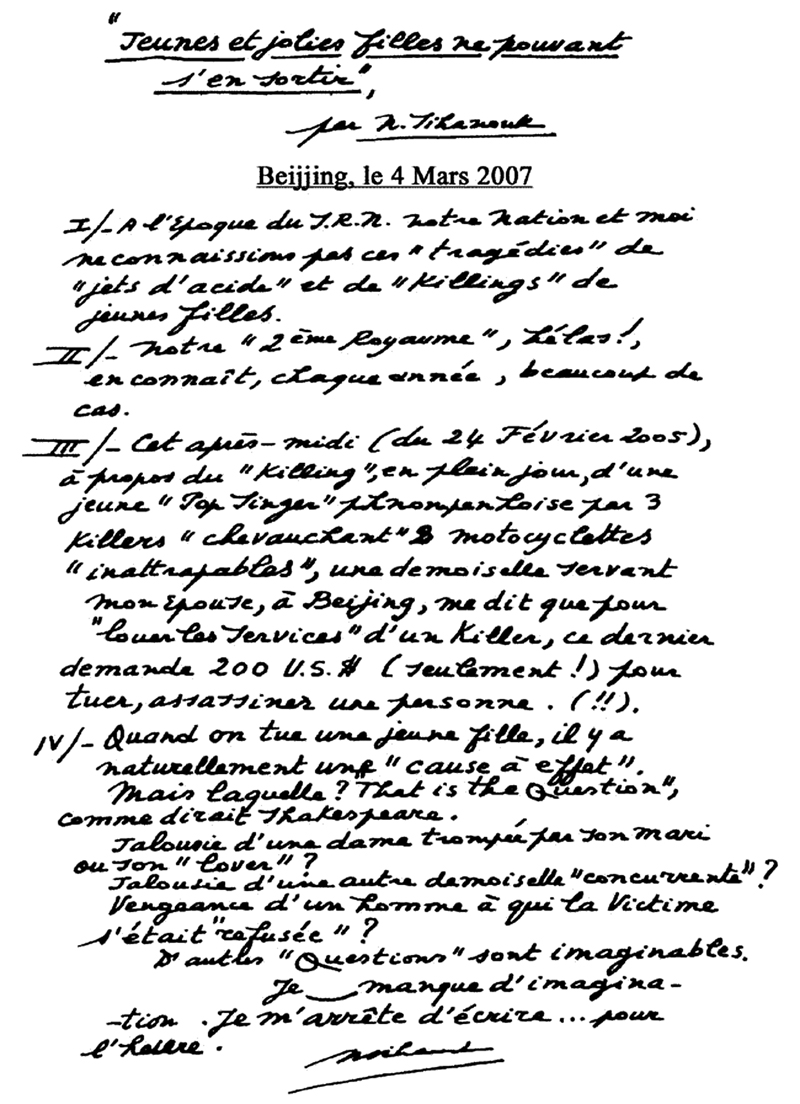 "Jeunes et jolies filles ne pouvant
s'en sortir",
par N. Sihanouk
Beijjing, le 4 Mars 2007
I/- A l'Epoque du S.R.N. notre Nation et moi
ne connaissions pas ces "tragédies" de
"jets d'acide" et de "Killings" de
jeunes filles.
II/- Notre "2ème Royaume", hélas!,
en connaît, chaque année, beaucoup de
cas.
III/- Cet après-midi (du 24 Février 2005),
à propos du "Killing", en plein jour, d'une
jeune "Top Singer" phnompenhoise par 3
Killers "chevauchant" 3 motocyclettes
"inattrapables", une demoiselle servant
mon Epouse, à Beijing, me dit que pour
"louer les services" d'un Killer, ce dernier
demande 200 U.S.$ (seulement!) pour
tuer, assassiner une personne. (!!).
IV/- Quand on tue une jeune fille, il y a
naturellement une "cause à effet".
Mais laquelle? "That is the Question",
comme dirait Shakespeare.
Jalousie d'une dame trompée par son mari
ou son "lover"?
Jalousie d'une autre demoiselle "concurrente"?
Vengeance d'un homme à qui la Victime
s'était "refusée"?
D'autres "Questions" sont imaginables.
Je manque d'imagina-
-tion. Je m'arrête d'écrire... pour
l'heure.